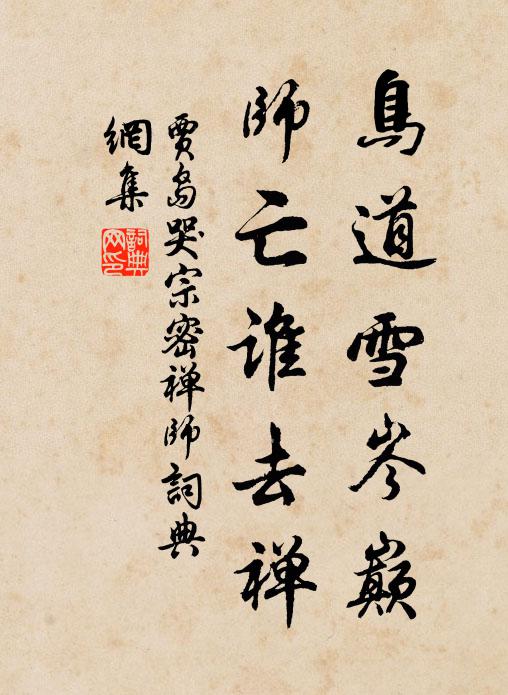 鳥道雪岑巔
師亡誰去禅
賈島哭宗密禅師詞典
網集
詞典
网印